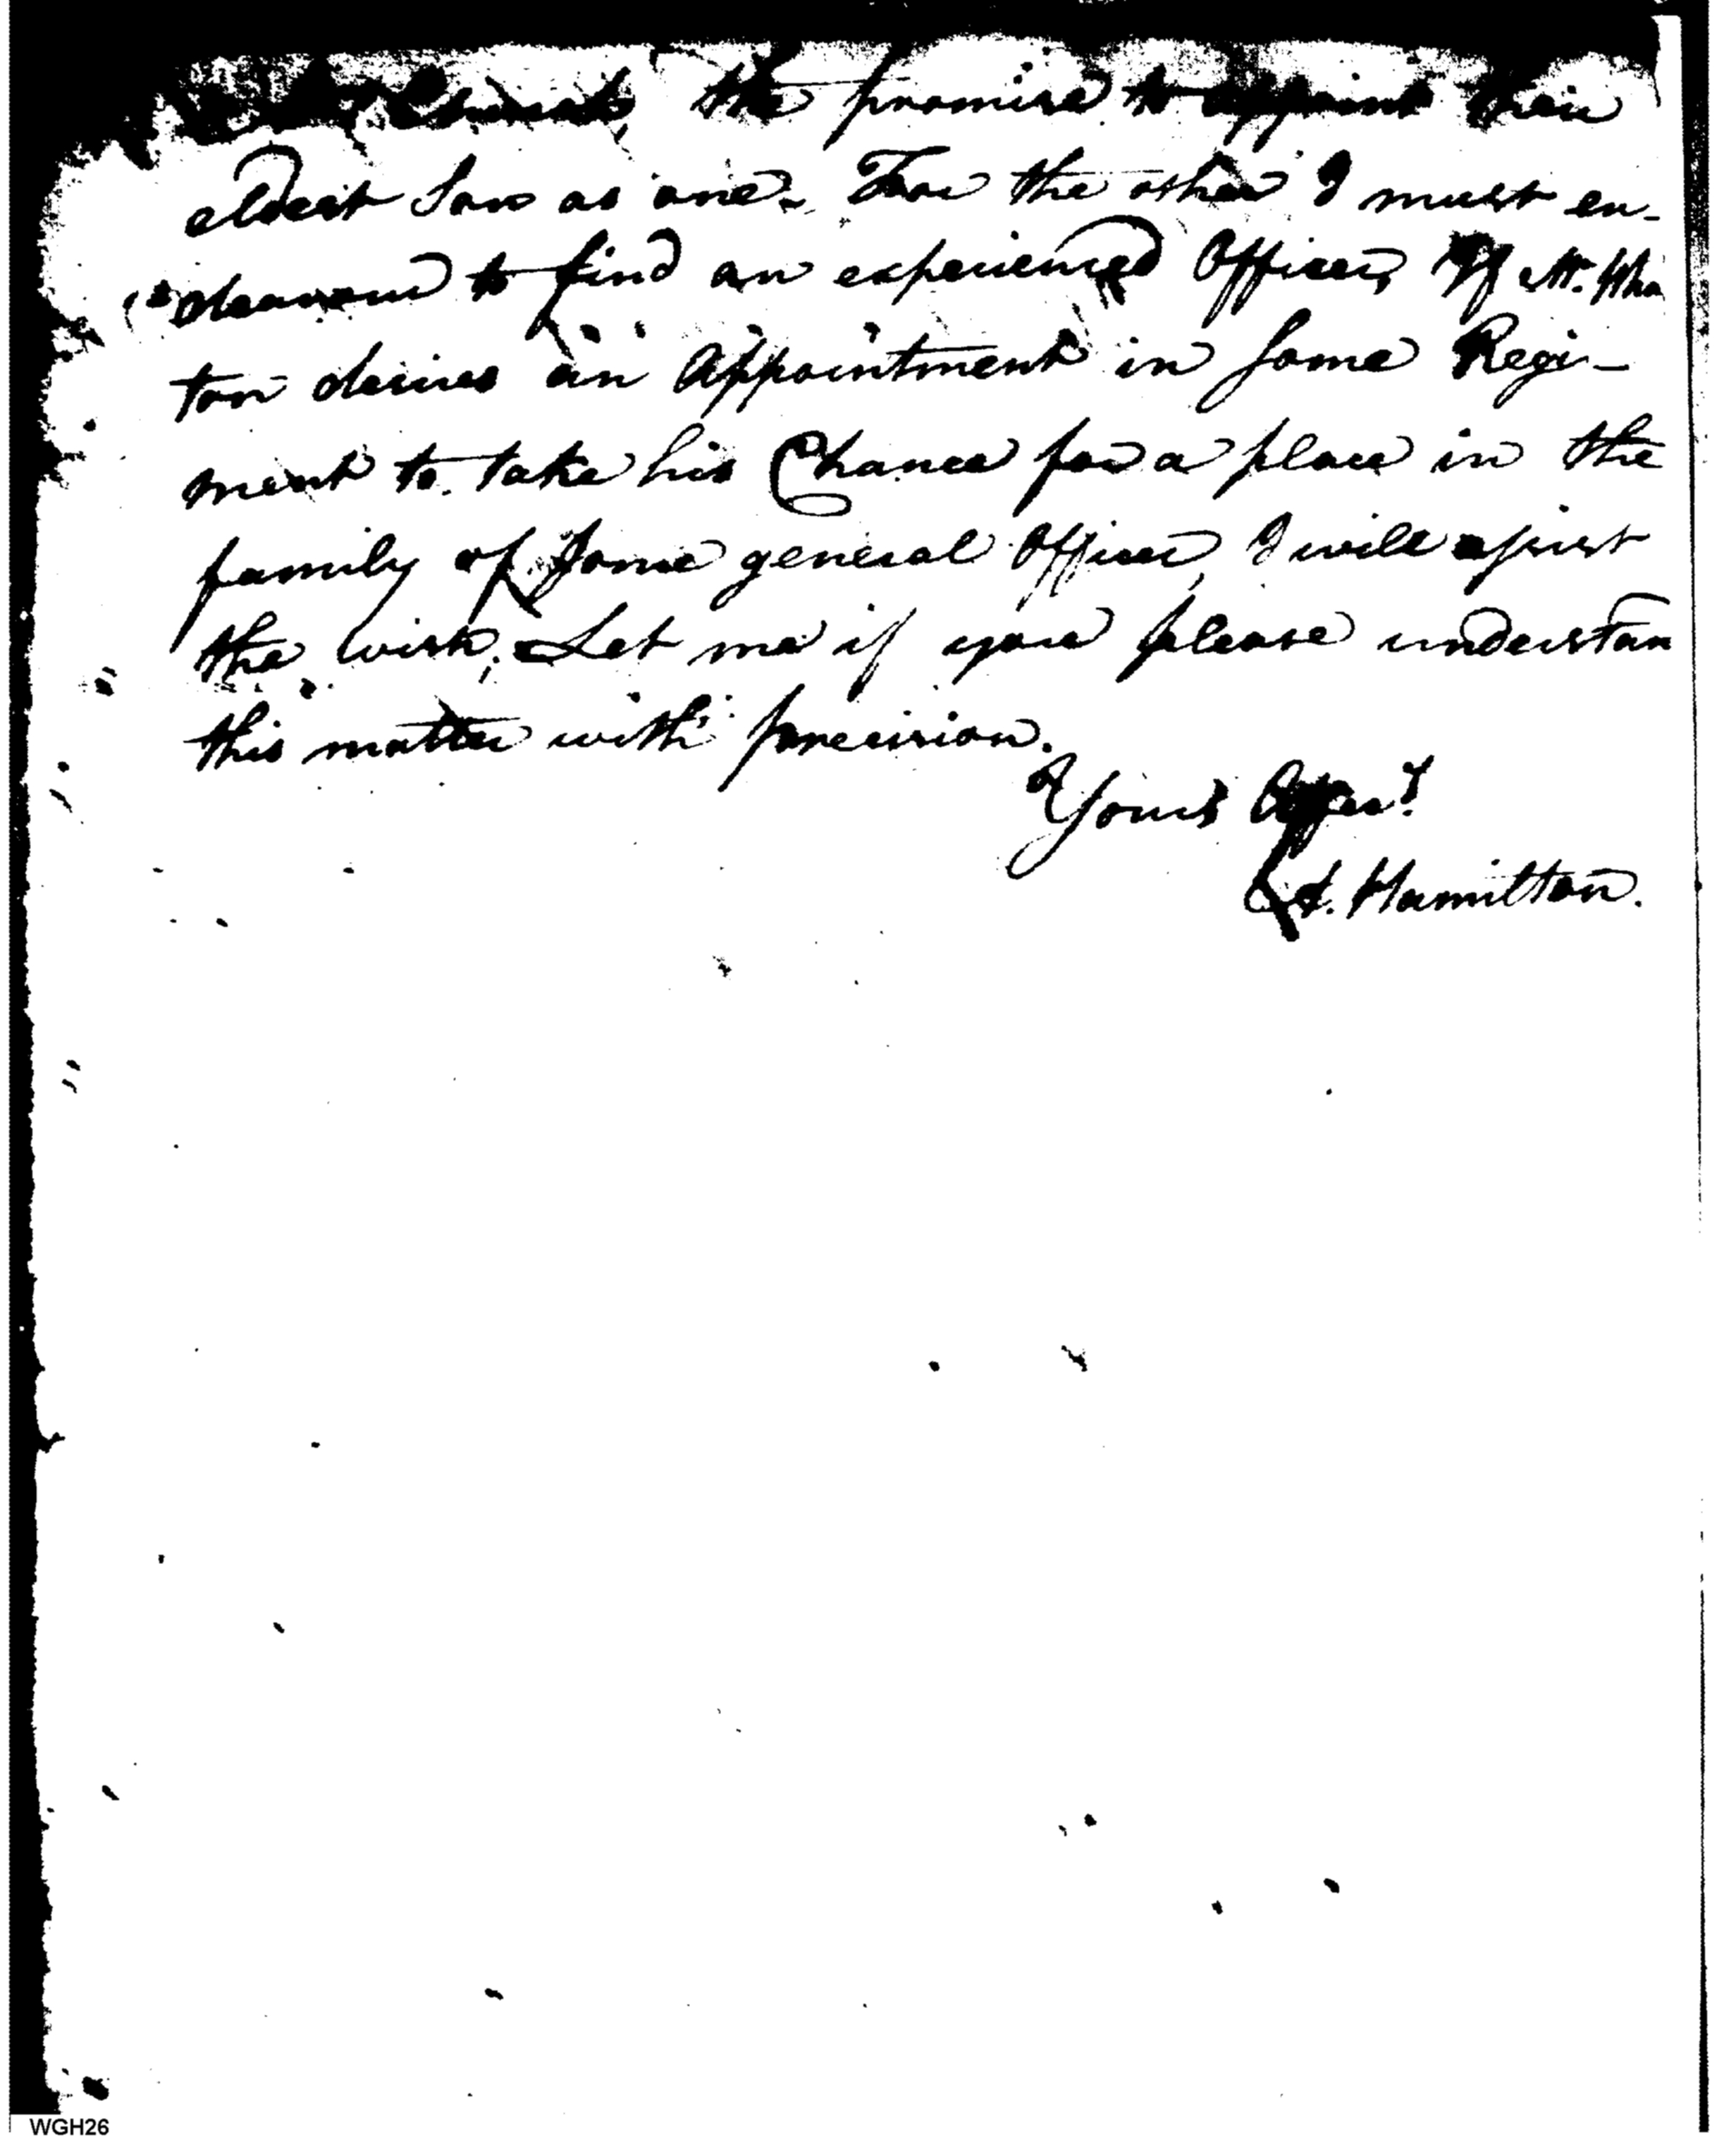 Church, the promise to appoint their
eldest Son as one. For the other I must en-
deavour to find an experienced Officer. If Mr. Wha
ton desires an Appointment in some Regi-
ment to take his Chance for a place in the
family of some general Officer, I will assist
the wish. Let me if you please understan
this matter with precision.
Yours Affect.
A. Hamilton.
WGH26